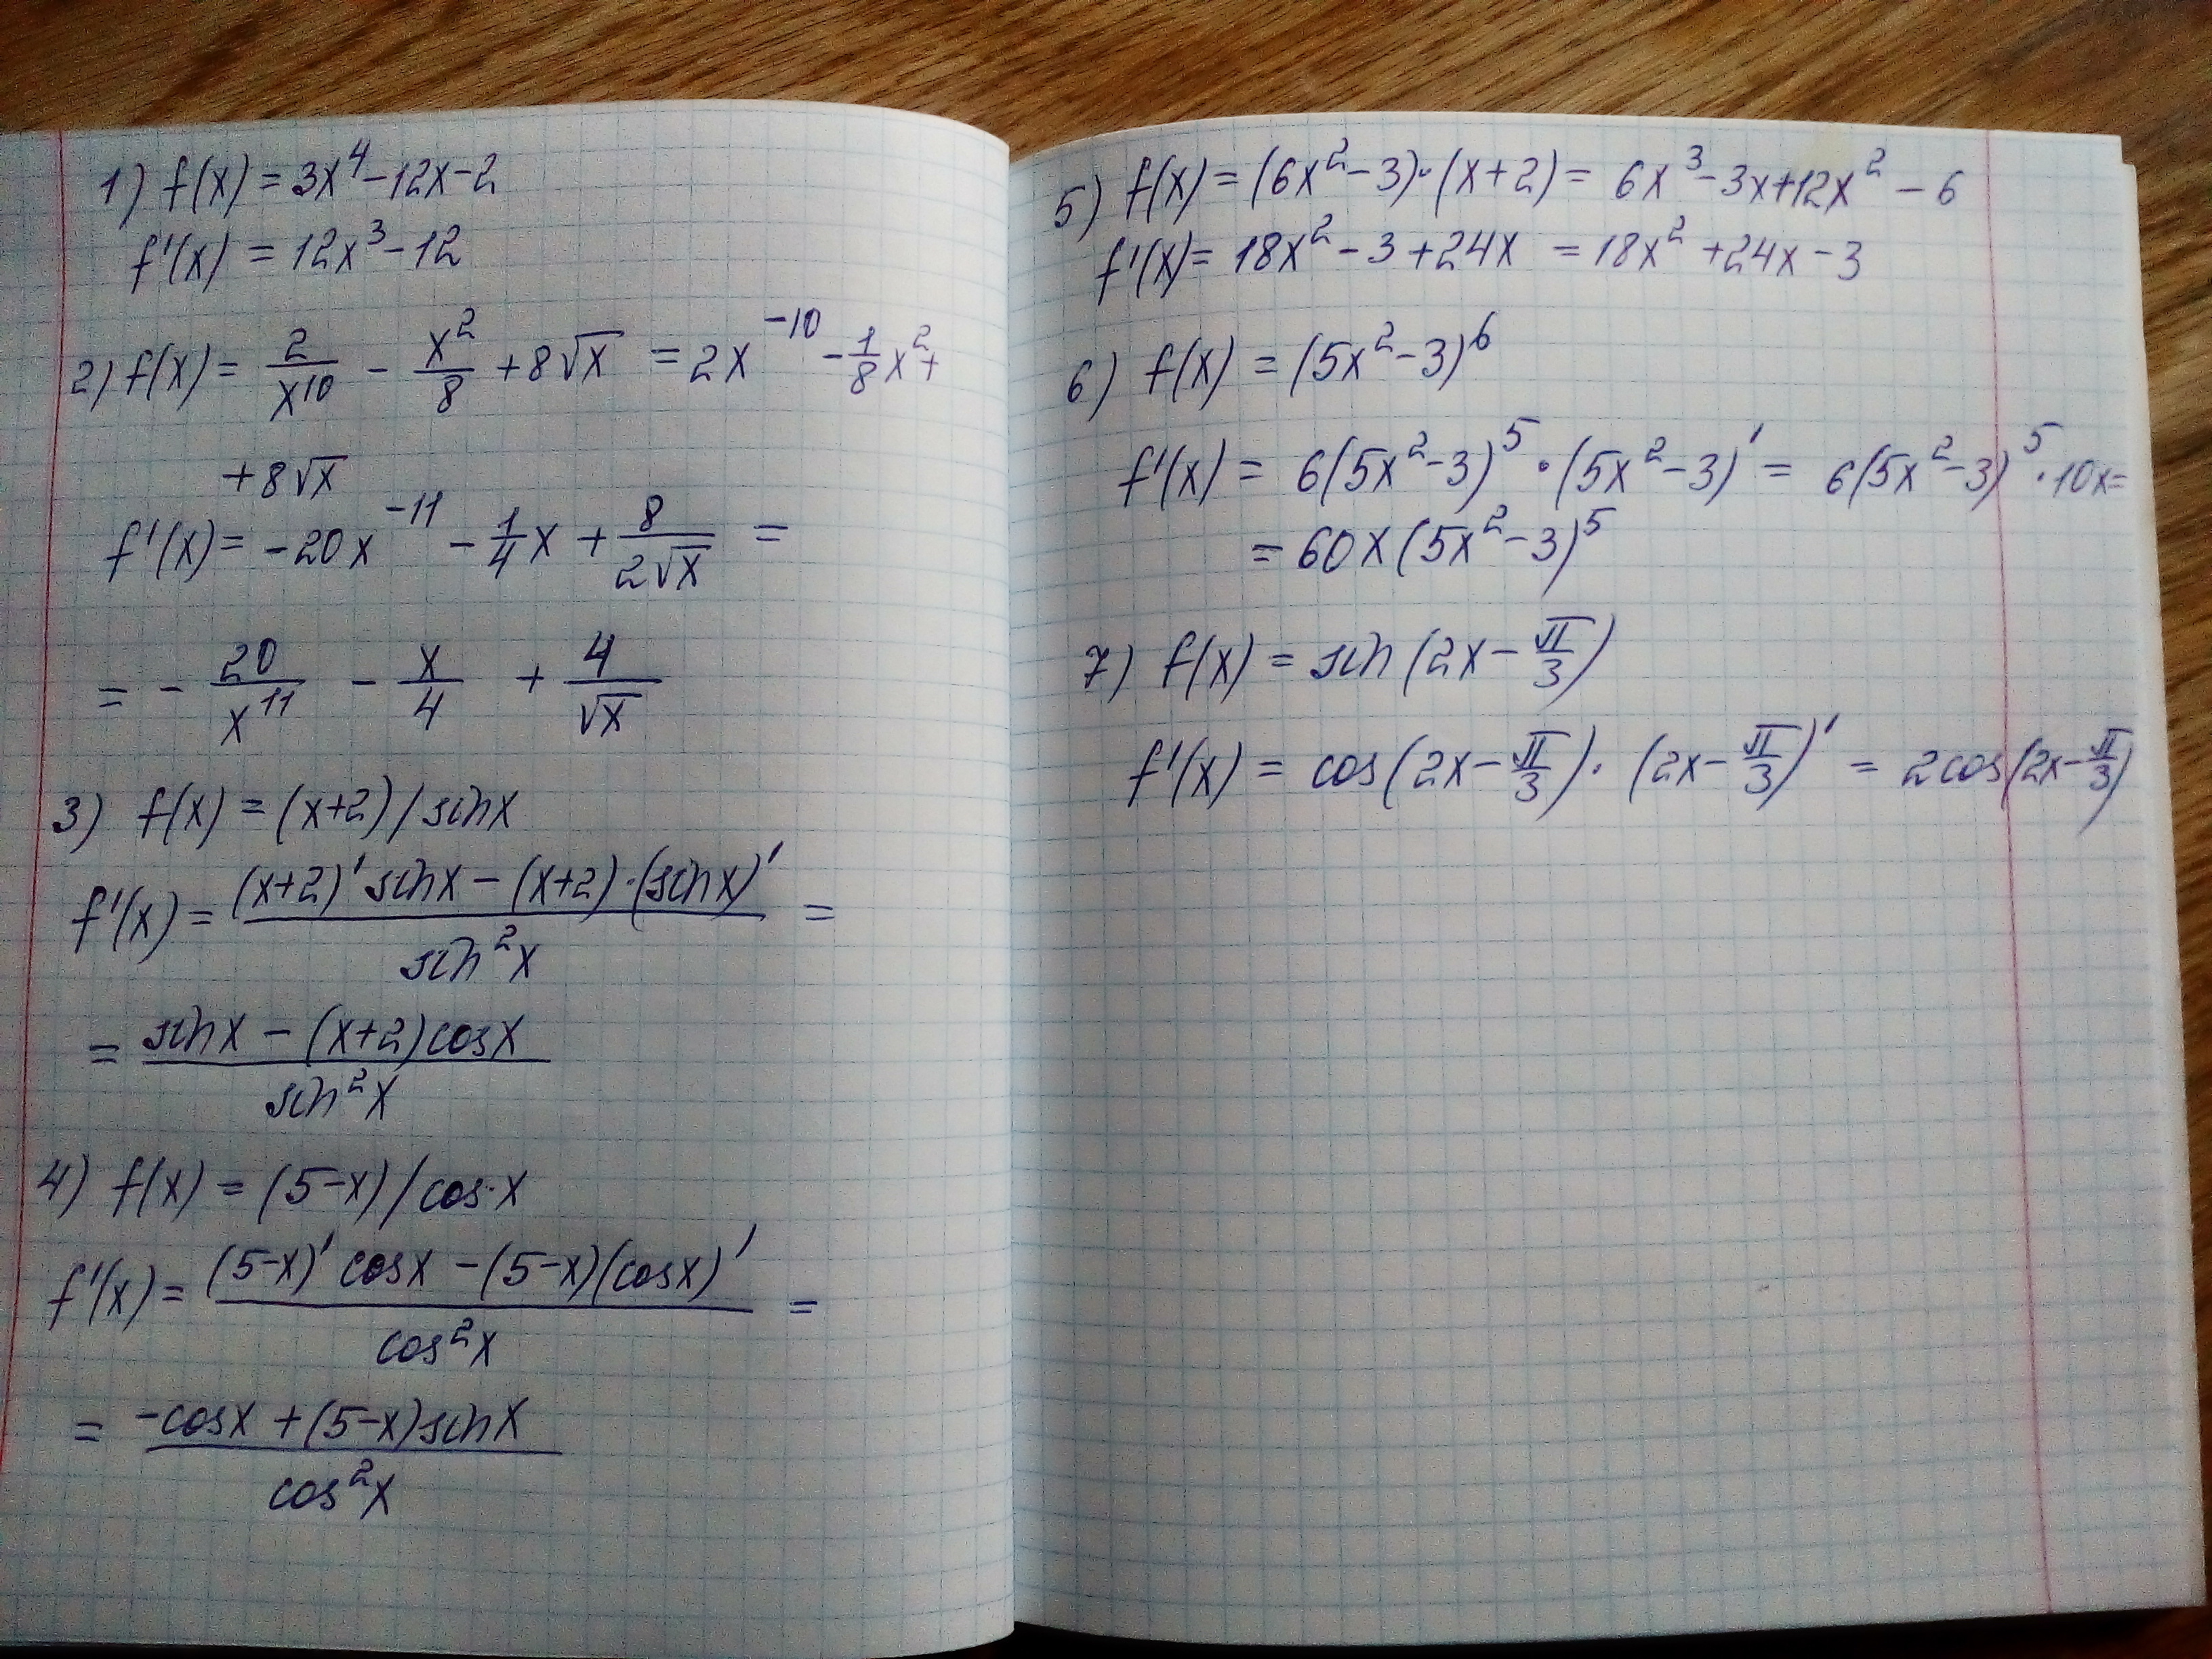 1) f(x) = 3x⁴ - 12x - 2
f'(x) = 12x³ - 12
2) f(x) = 2/x¹⁰ - x²/8 + 8√x = 2x⁻¹⁰ - 1/8 x² +
+ 8√x
f'(x) = -20x⁻¹¹ - 1/4 x + 8/(2√x) =
= - 20/x¹¹ - x/4 + 4/√x
3) f(x) = (x+2)/sin x
f'(x) = ((x+2)' sin x - (x+2)·(sin x)')/(sin²x) =
= (sin x - (x+2)cos x)/(sin²x)
4) f(x) = (5-x)/cos x
f'(x) = ((5-x)' cos x - (5-x)(cos x)')/(cos²x) =
= (-cos x + (5-x)sin x)/(cos²x)
5) f(x) = (6x² - 3)·(x+2) = 6x³ - 3x + 12x² - 6
f'(x) = 18x² - 3 + 24x = 18x² + 24x - 3
6) f(x) = (5x² - 3)⁶
f'(x) = 6(5x² - 3)⁵ · (5x² - 3)' = 6(5x² - 3)⁵ · 10x =
= 60x(5x² - 3)⁵
7) f(x) = sin(2x - π/3)
f'(x) = cos(2x - π/3) · (2x - π/3)' = 2cos(2x - π/3)